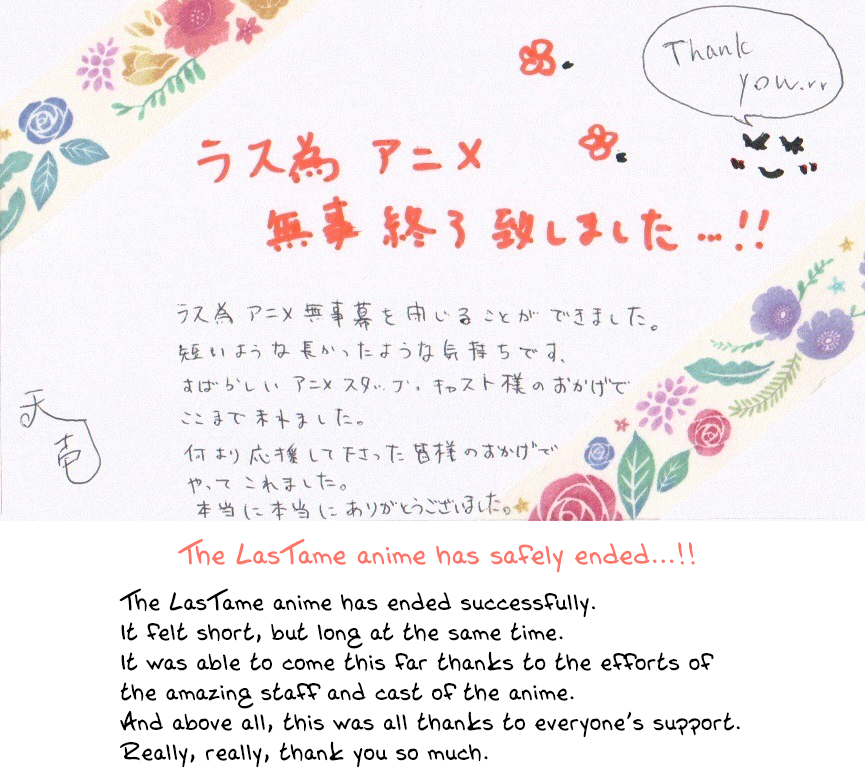 Thank
you...
ラス為 アニメ
無事 終了 致しました…!!
ラス為 アニメ 無事幕を閉じることができました。
短いような長かったような気持ちです、
すばらしい アニメスタッフ、キャスト様のおかげで
ここまで来れました。
何より応援して下さった皆様のおかげで
やってこれました。
本当に本当にありがとうございました。
天壱
The LasTame anime has safely ended...!!
The LasTame anime has ended successfully.
It felt short, but long at the same time.
It was able to come this far thanks to the efforts of
the amazing staff and cast of the anime.
And above all, this was all thanks to everyone's support.
Really, really, thank you so much.